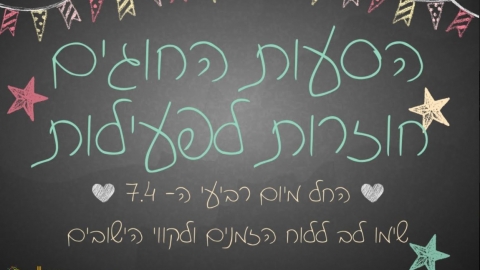 הסעות החוגים
חוזרות לפעילות
החל מיום רביעי ה- 7.4
שימו לב ללוח הזמנים ולקווי הישובים